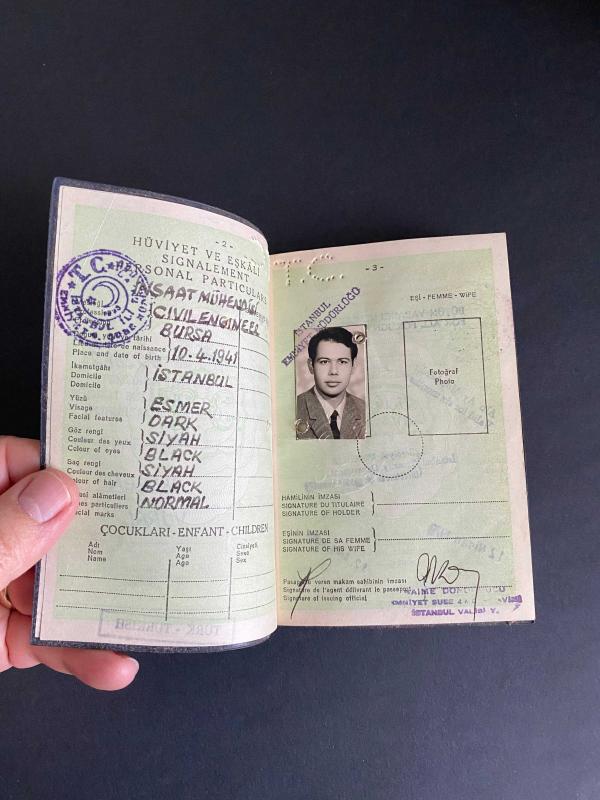 -2-
HÜVİYET VE EŞKÂLİ
SIGNALEMENT
PERSONAL PARTICULARS
T.C.
İNŞAAT MÜHENDİSİ
CIVIL ENGINEER
BURSA
tarihi
de naissance
Place and date of birth
10.4.1941
İkametgâhı
Domicile
Domicile
İSTANBUL
Yüzü
Visage
Facial features
ESMER
DARK
Göz rengi
Couleur des yeux
Colour of eyes
SİYAH
BLACK
Saç rengi
Couleur des cheveux
Colour of hair
SİYAH
BLACK
alâmetleri
particuliers
marks
NORMAL
ÇOCUKLARI - ENFANT - CHILDREN
Adı
Nom
Name
Yaşı
Age
Age
Cinsiyeti
Sexe
Sex
TÜRK - TURKISH
T.C.
-3-
İSTANBUL
EMNİYET MÜDÜRLÜĞÜ
EŞİ - FEMME - WIFE
Fotoğraf
Photo
HÂMİLİNİN İMZASI
SIGNATURE DU TITULAIRE
SIGNATURE OF HOLDER
EŞİNİN İMZASI
SIGNATURE DE SA FEMME
SIGNATURE OF HIS WIFE
Pasaportu veren makam sahibinin imzası
Signature de l'agent délivrant le passeport
Signature of issuing official
İSTANBUL VALİSİ Y.